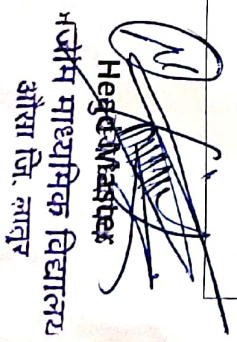 Head Master
माध्यमिक विद्यालय
औसा जि. लातूर